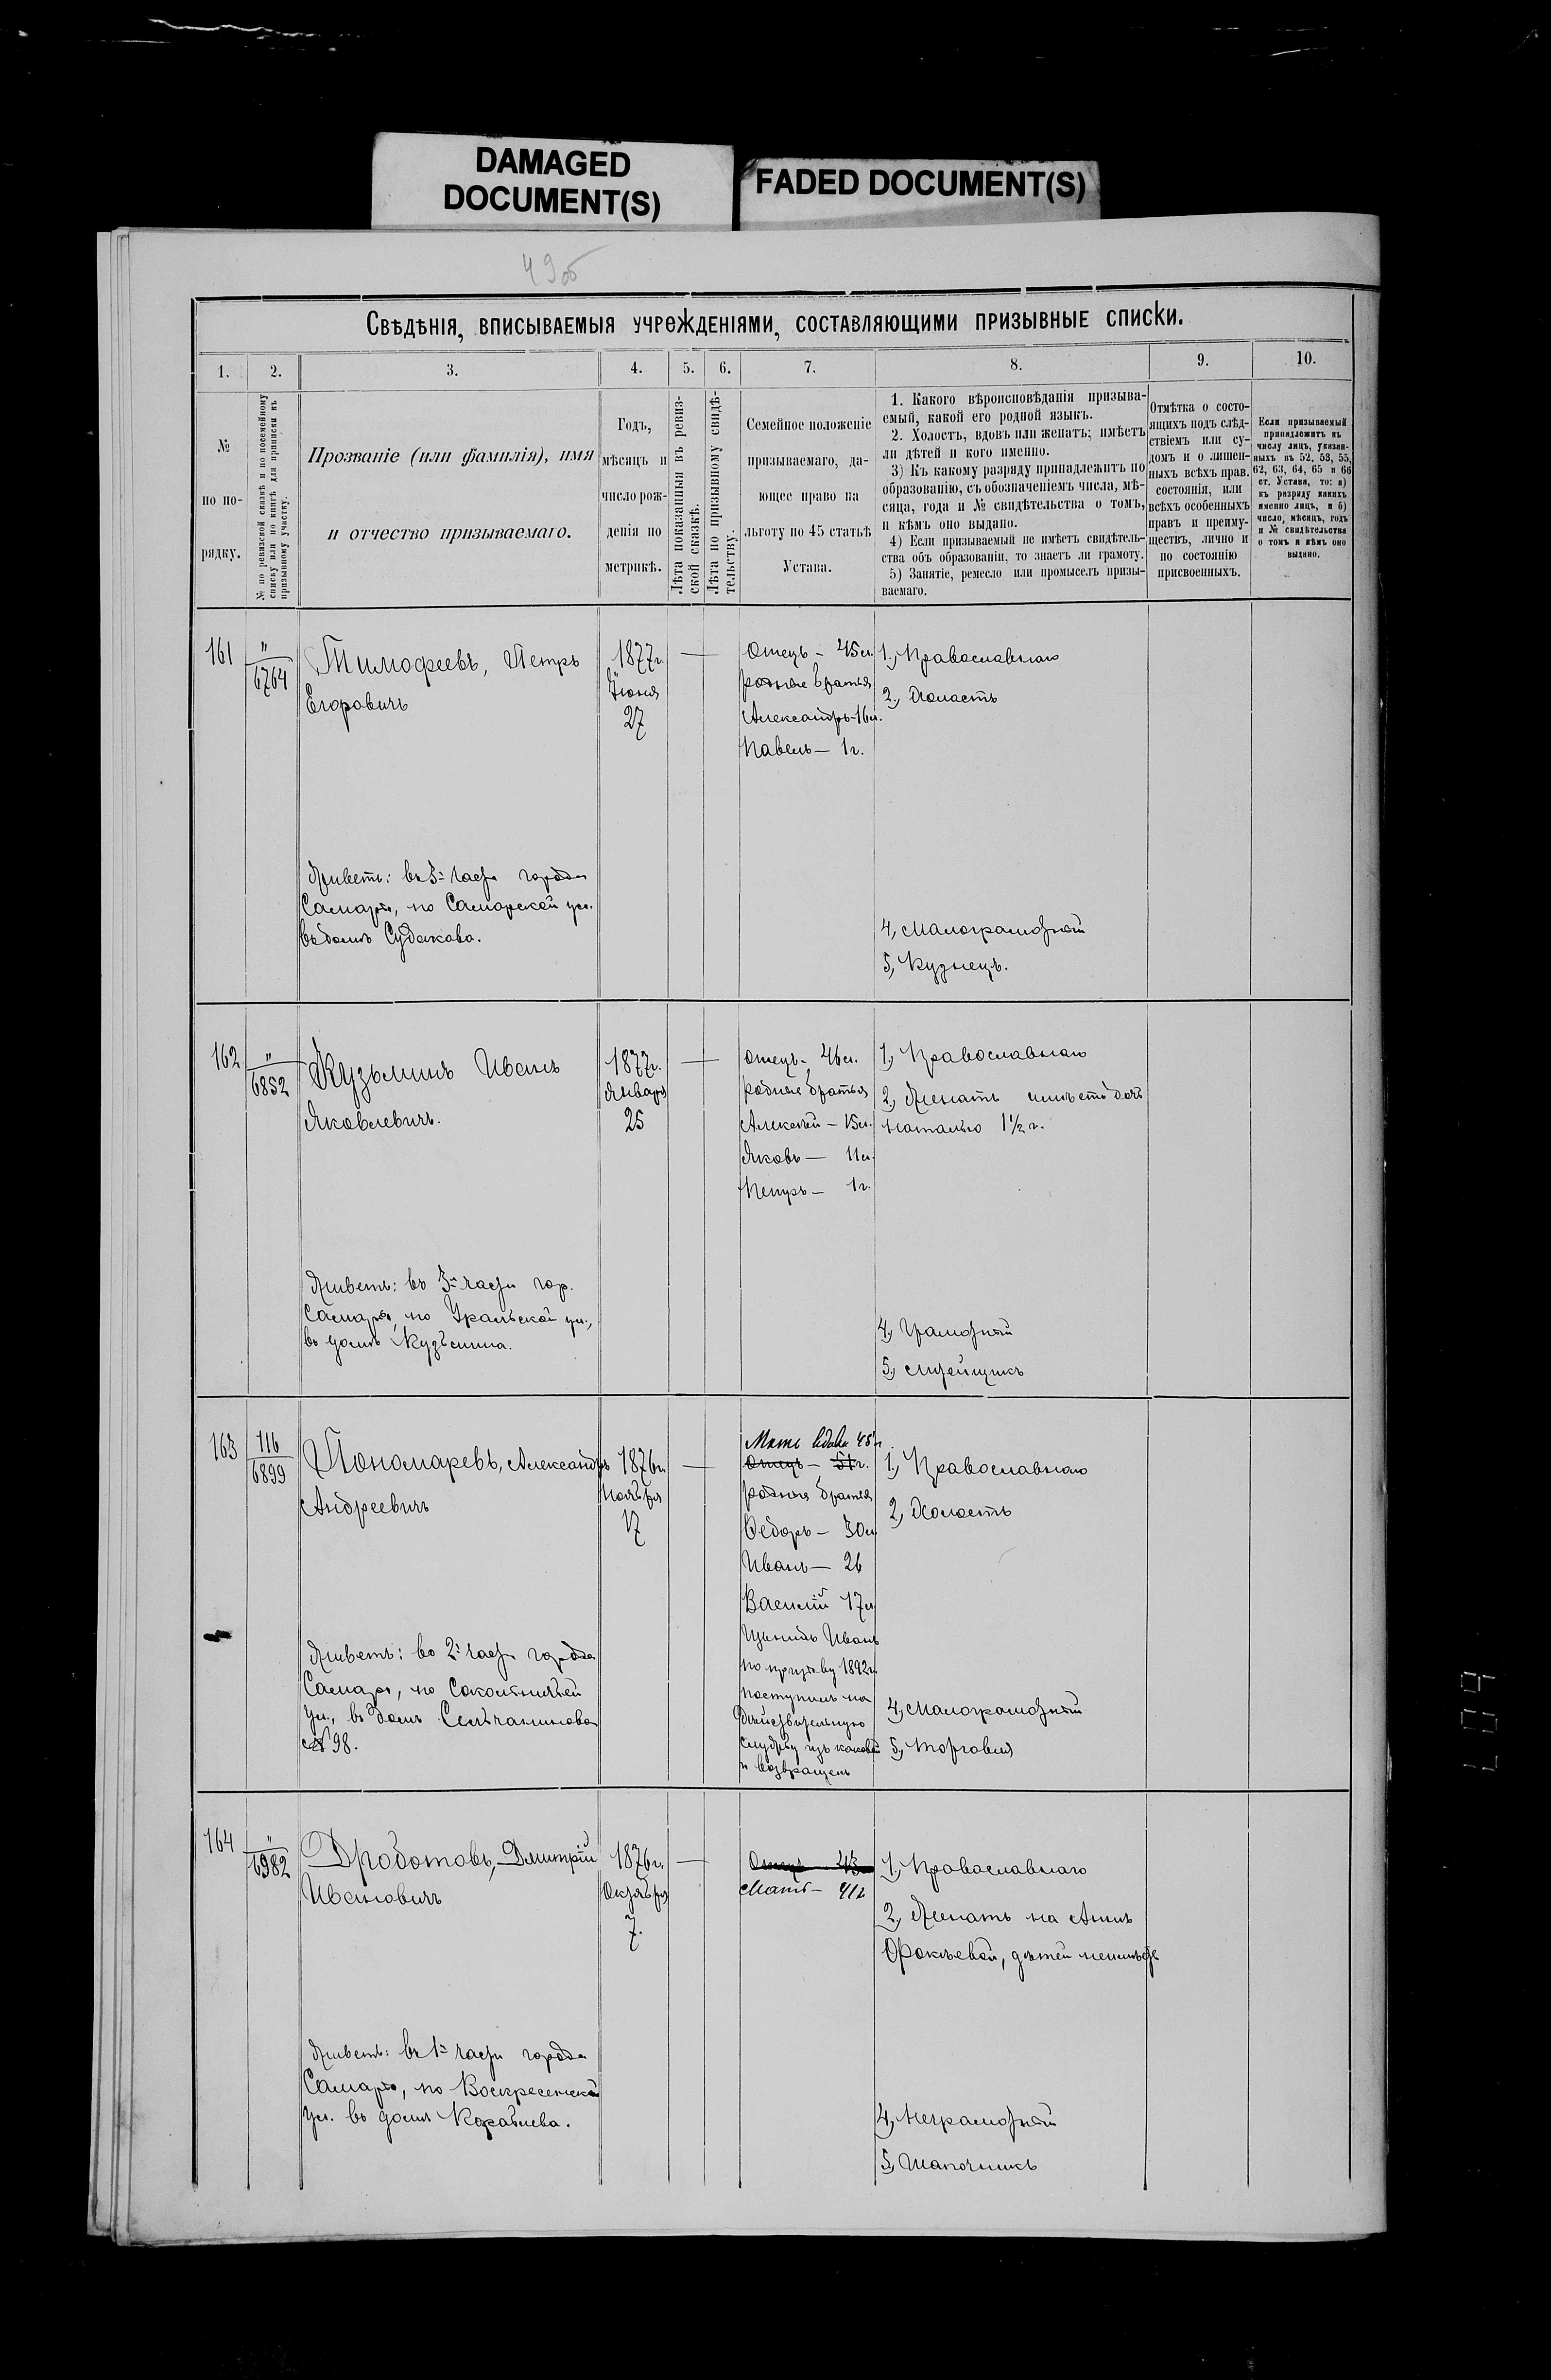 DAMAGED
DOCUMENT(S)
FADED DOCUMENT(S)
49об
Свѣдѣнія, вписываемыя учрежденіями, составляющими призывные списки.
1. 2. 3. 4. 5. 6. 7. 8. 9. 10.
№
по по-
рядку.
№ по ревизской сказкѣ и по посемейному
списку или по книгѣ для приписки къ
призывному участку.
Прозваніе (или фамилія), имя
и отчество призываемаго.
Годъ,
мѣсяцъ и
число рож-
денія по
метрикѣ.
Лѣта показанныя въ ревиз-
ской сказкѣ.
Лѣта по призывному свидѣ-
тельству.
Семейное положеніе
призываемаго, да-
ющее право на
льготу по 45 статьѣ
Устава.
1. Какого вѣроисповѣданія призыва-
емый, какой его родной языкъ.
2. Холостъ, вдовъ или женатъ; имѣетъ
ли дѣтей и кого именно.
3) Къ какому разряду принадлежитъ по
образованію, съ обозначеніемъ числа, мѣ-
сяца, года и № свидѣтельства о томъ,
и кѣмъ оно выдано.
4) Если призываемый не имѣетъ свидѣтель-
ства объ образованіи, то знаетъ ли грамоту.
5) Занятіе, ремесло или промыселъ призы-
ваемаго.
Отмѣтка о состо-
ящихъ подъ слѣд-
ствіемъ или су-
домъ и о лишен-
ныхъ всѣхъ прав.
состоянія, или
всѣхъ особенныхъ
правъ и преиму-
ществъ, лично и
по состоянію
присвоенныхъ.
Если призываемый
принадлежитъ къ
числу лицъ, указан-
ныхъ въ 52, 53, 55,
62, 63, 64, 65 и 66
ст. Устава, то: а)
къ разряду какихъ
именно лицъ, и б)
число, мѣсяцъ, годъ
и № свидѣтельства
о томъ и кѣмъ оно
выдано.
161
"
6764
Тимофеевъ, Петръ
Егоровичъ
Живетъ: въ 3й части города
Самары, по Самарской ул.
въ домѣ Судакова.
1877г.
Іюня
27
—
Отецъ – 45л.
родные братья
Александръ–16л.
Павелъ – 1г.
1, Православнаго
2, Холостъ
4, Малограмотный
5, Кузнецъ.
162
"
6852
Кузьминъ Иванъ
Яковлевичъ.
Живетъ: въ 3й части гор.
Самары, по Уральской ул.,
въ домѣ Кузьмина.
1877г.
Января
25
—
Отецъ – 46л.
родные братья
Алексѣй – 15л.
Яковъ – 11л.
Петръ – 1г.
1, Православнаго
2, Женатъ имѣетъ дочь
Наталью 1½ г.
4, Грамотный
5, Литейщикъ
163
116
6899
Пономаревъ, Александръ
Андреевичъ
Живетъ: во 2й части города
Самары, по Сокольничьей
ул., въ домѣ
№ 98.
1876г.
Ноября
17
—
Мать вдова 45л.
Отецъ – 51г.
родные братья
Ѳедоръ – 30л
Иванъ – 26
Василій 17л
Иванъ
по призыву 1892г.
поступилъ на
дѣйствительную
службу изъ каковой
и возвращенъ
1, Православнаго
2, Холостъ
4, Малограмотный
5, Торговля
164
"
6982
Дроботовъ, Дмитрій
Ивановичъ
Живетъ: въ 1й части города
Самары, по Воскресенской
ул. въ домѣ Корабнева.
1876г.
Октября
7.
—
Отецъ 43
Мать – 41г
1, Православнаго
2, Женатъ на Аннѣ
Ѳокѣевой, дѣтей неимѣетъ
4, Неграмотный
5, Шапочникъ
607